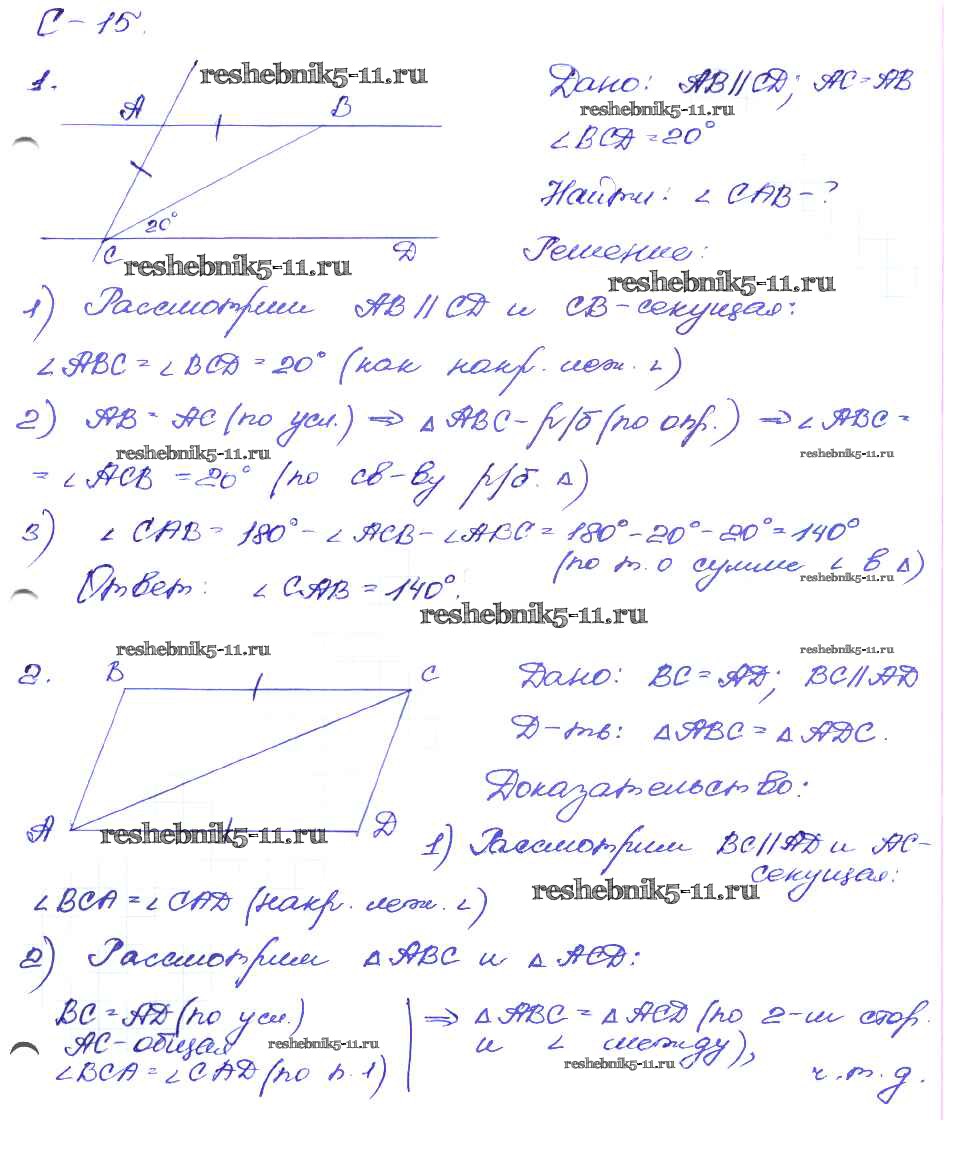 С-15.
1.
reshebnik5-11.ru
A
B
20°
C
D
reshebnik5-11.ru
Дано: AB//CD; AC=AB
reshebnik5-11.ru
∠BCD=20°
Найти: ∠CAB-?
Решение:
reshebnik5-11.ru
1) Рассмотрим AB//CD и CB-секущая:
∠ABC=∠BCD=20° (как накр. леж. ∠)
2) AB=AC (по усл.) ⇒ △ABC-р/б (по опр.) ⇒ ∠ABC=
reshebnik5-11.ru
reshebnik5-11.ru
=∠ACB=20° (по св-ву р/б. △)
3) ∠CAB=180°-∠ACB-∠ABC=180°-20°-20°=140°
(по т. о сумме ∠ в △)
reshebnik5-11.ru
Ответ: ∠CAB=140°.
reshebnik5-11.ru
reshebnik5-11.ru
reshebnik5-11.ru
2.
B
C
A
D
reshebnik5-11.ru
Дано: BC=AD; BC//AD
Д-ть: △ABC=△ADC.
Доказательство:
1) Рассмотрим BC//AD и AC-
секущая:
reshebnik5-11.ru
∠BCA=∠CAD (накр. леж. ∠)
2) Рассмотрим △ABC и △ACD:
BC=AD (по усл.)
AC-общая
reshebnik5-11.ru
∠BCA=∠CAD (по п. 1)
⇒ △ABC=△ACD (по 2-м стор.
и ∠ между),
reshebnik5-11.ru
ч.т.д.